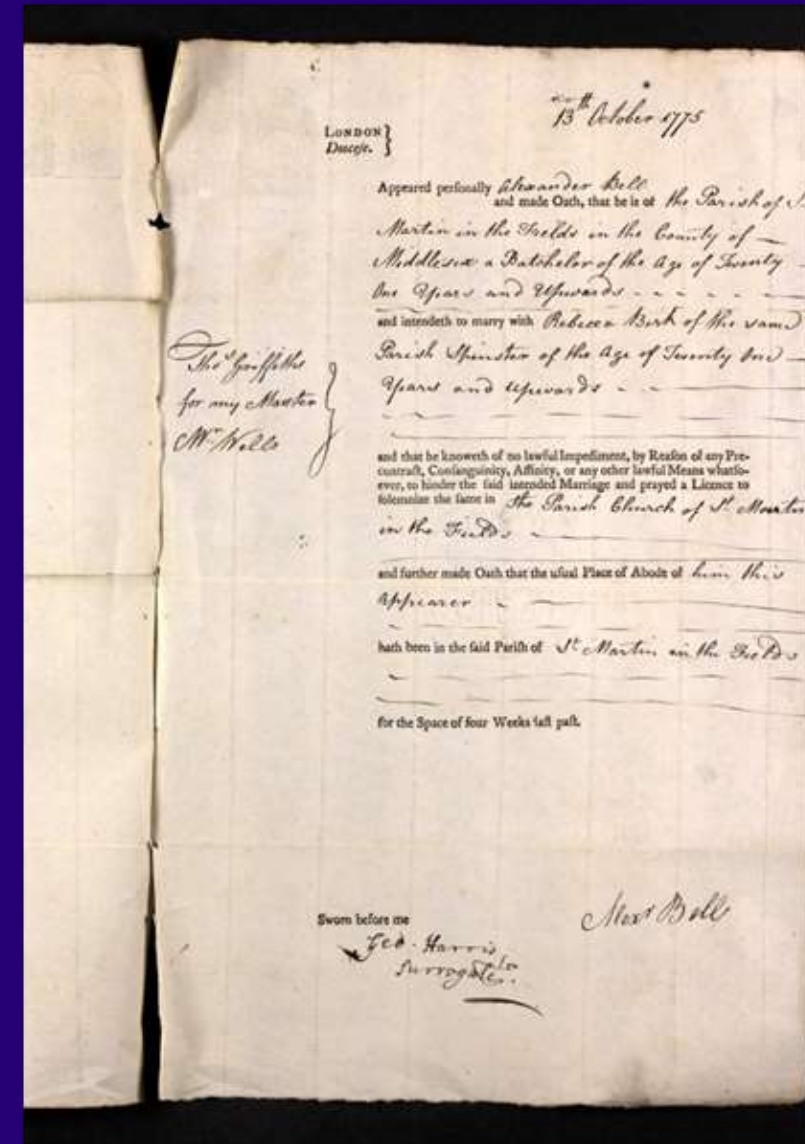 13th October 1775
LONDON }
Diocese. }
Appeared perſonally Alexander Bell
and made Oath, that he is of the Parish of St
Martin in the Fields in the County of
Middlesex a Batchelor of the Age of Twenty
One Years and Upwards
and intendeth to marry with Rebecca of the same
Parish Spinster of the Age of Twenty One
Years and Upwards
Thos Griffiths
for my Master
Mr Wells
and that he knoweth of no lawful Impediment, by Reaſon of any Pre-
contract, Conſanguinity, Affinity, or any other lawful Means whatſo-
ever, to hinder the ſaid intended Marriage and prayed a Licence to
ſolemnize the ſame in the Parish Church of St Martin
in the Fields
and further made Oath that the uſual Place of Abode of him this
Appearer
hath been in the ſaid Pariſh of St Martin in the Fields
for the Space of four Weeks laſt paſt.
Alexr Bell
Sworn before me
Geo. Harris
Surrogate